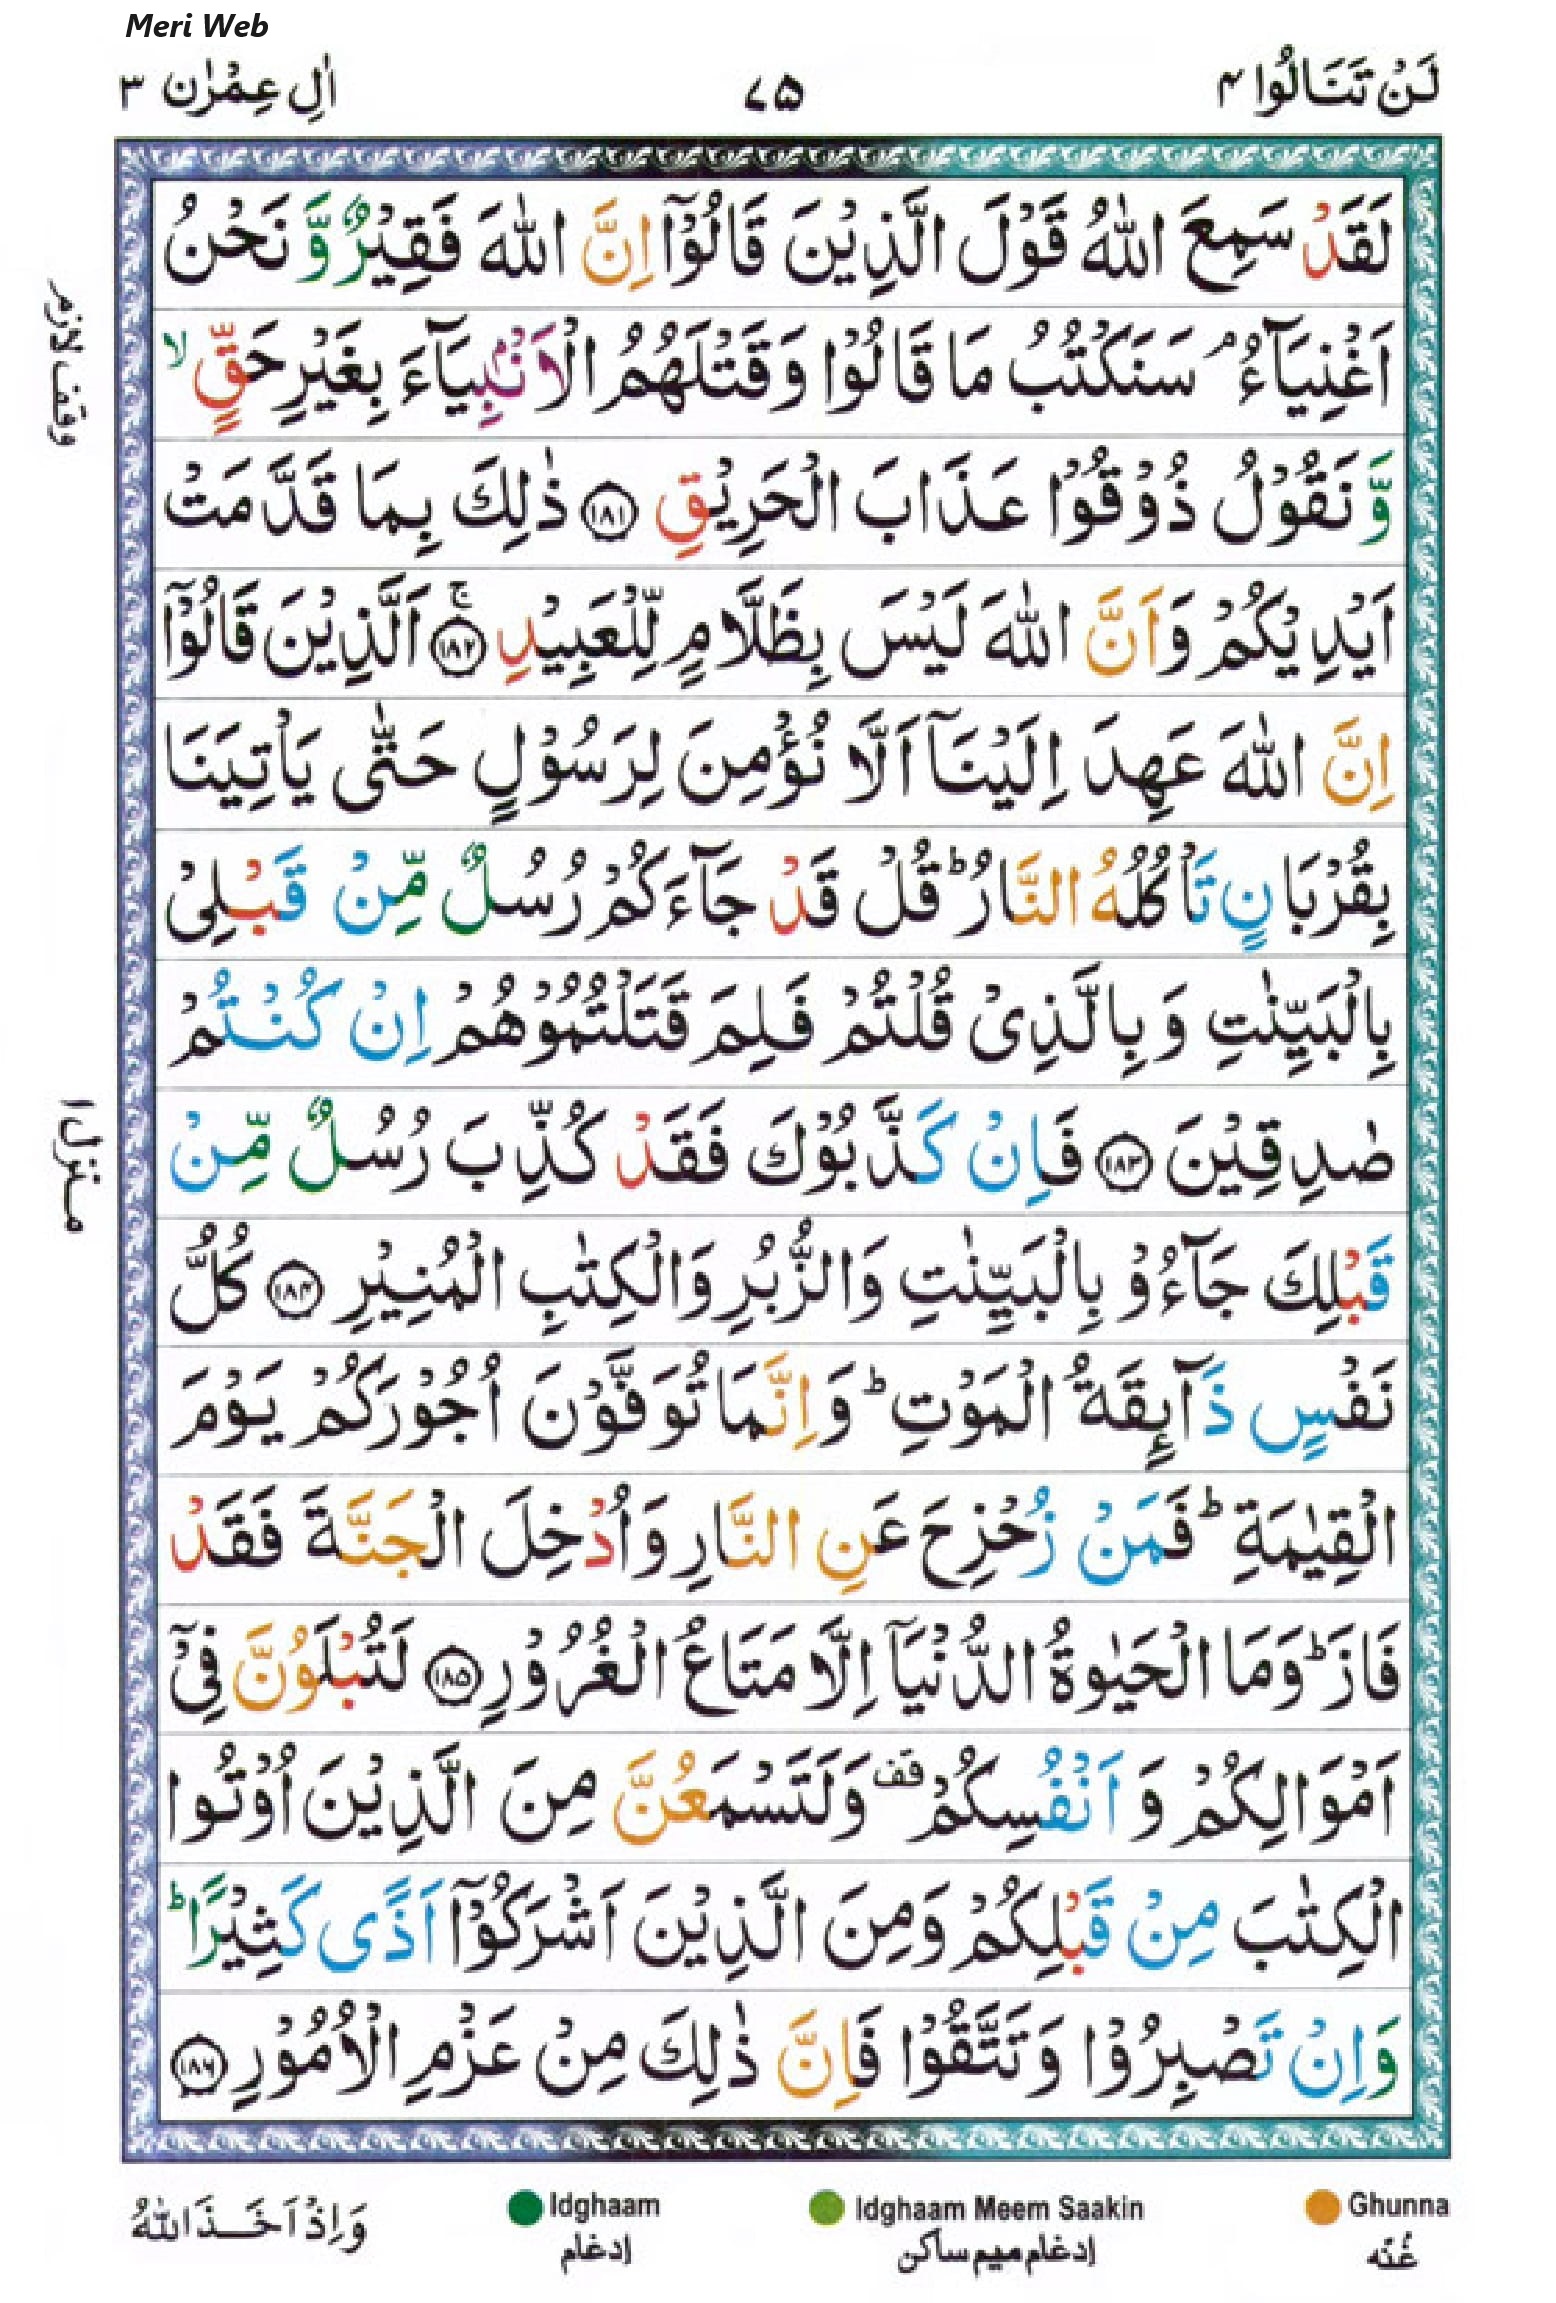 Meri Web
لَنْ تَنَالُوا ۴ ۷۵ اٰلِ عِمْرٰن ۳
لَقَدْ سَمِعَ اللّٰهُ قَوْلَ الَّذِيْنَ قَالُوْۤا اِنَّ اللّٰهَ فَقِيْرٌ وَّ نَحْنُ
اَغْنِيَآءُ ۘ سَنَكْتُبُ مَا قَالُوْا وَقَتْلَهُمُ الْاَنْۢبِيَآءَ بِغَيْرِ حَقٍّ ۙ
وَّ نَقُوْلُ ذُوْقُوْا عَذَابَ الْحَرِيْقِ ﴿۱۸۱﴾ ذٰلِكَ بِمَا قَدَّمَتْ
اَيْدِيْكُمْ وَاَنَّ اللّٰهَ لَيْسَ بِظَلَّامٍ لِّلْعَبِيْدِ ﴿۱۸۲﴾ۚ اَلَّذِيْنَ قَالُوْۤا
اِنَّ اللّٰهَ عَهِدَ اِلَيْنَاۤ اَلَّا نُؤْمِنَ لِرَسُوْلٍ حَتّٰى يَاْتِيَنَا
بِقُرْبَانٍ تَاْكُلُهُ النَّارُ ؕ قُلْ قَدْ جَآءَكُمْ رُسُلٌ مِّنْ قَبْلِىْ
بِالْبَيِّنٰتِ وَ بِالَّذِىْ قُلْتُمْ فَلِمَ قَتَلْتُمُوْهُمْ اِنْ كُنْتُمْ
صٰدِقِيْنَ ﴿۱۸۳﴾ فَاِنْ كَذَّبُوْكَ فَقَدْ كُذِّبَ رُسُلٌ مِّنْ
قَبْلِكَ جَآءُوْ بِالْبَيِّنٰتِ وَالزُّبُرِ وَالْكِتٰبِ الْمُنِيْرِ ﴿۱۸۴﴾ كُلُّ
نَفْسٍ ذَآئِقَةُ الْمَوْتِ ؕ وَ اِنَّمَا تُوَفَّوْنَ اُجُوْرَكُمْ يَوْمَ
الْقِيٰمَةِ ؕ فَمَنْ زُحْزِحَ عَنِ النَّارِ وَ اُدْخِلَ الْجَنَّةَ فَقَدْ
فَازَ ؕ وَمَا الْحَيٰوةُ الدُّنْيَاۤ اِلَّا مَتَاعُ الْغُرُوْرِ ﴿۱۸۵﴾ لَتُبْلَوُنَّ فِىْۤ
اَمْوَالِكُمْ وَ اَنْفُسِكُمْ قف وَلَتَسْمَعُنَّ مِنَ الَّذِيْنَ اُوْتُوا
الْكِتٰبَ مِنْ قَبْلِكُمْ وَمِنَ الَّذِيْنَ اَشْرَكُوْۤا اَذًى كَثِيْرًا ؕ
وَاِنْ تَصْبِرُوْا وَتَتَّقُوْا فَاِنَّ ذٰلِكَ مِنْ عَزْمِ الْاُمُوْرِ ﴿۱۸۶﴾
وقف لازم
منزل ۱
Ghunna
غُنّه
Idghaam Meem Saakin
إدغام ميم ساكن
Idghaam
إدغام
وَاِذْ اَخَذَ اللّٰهُ